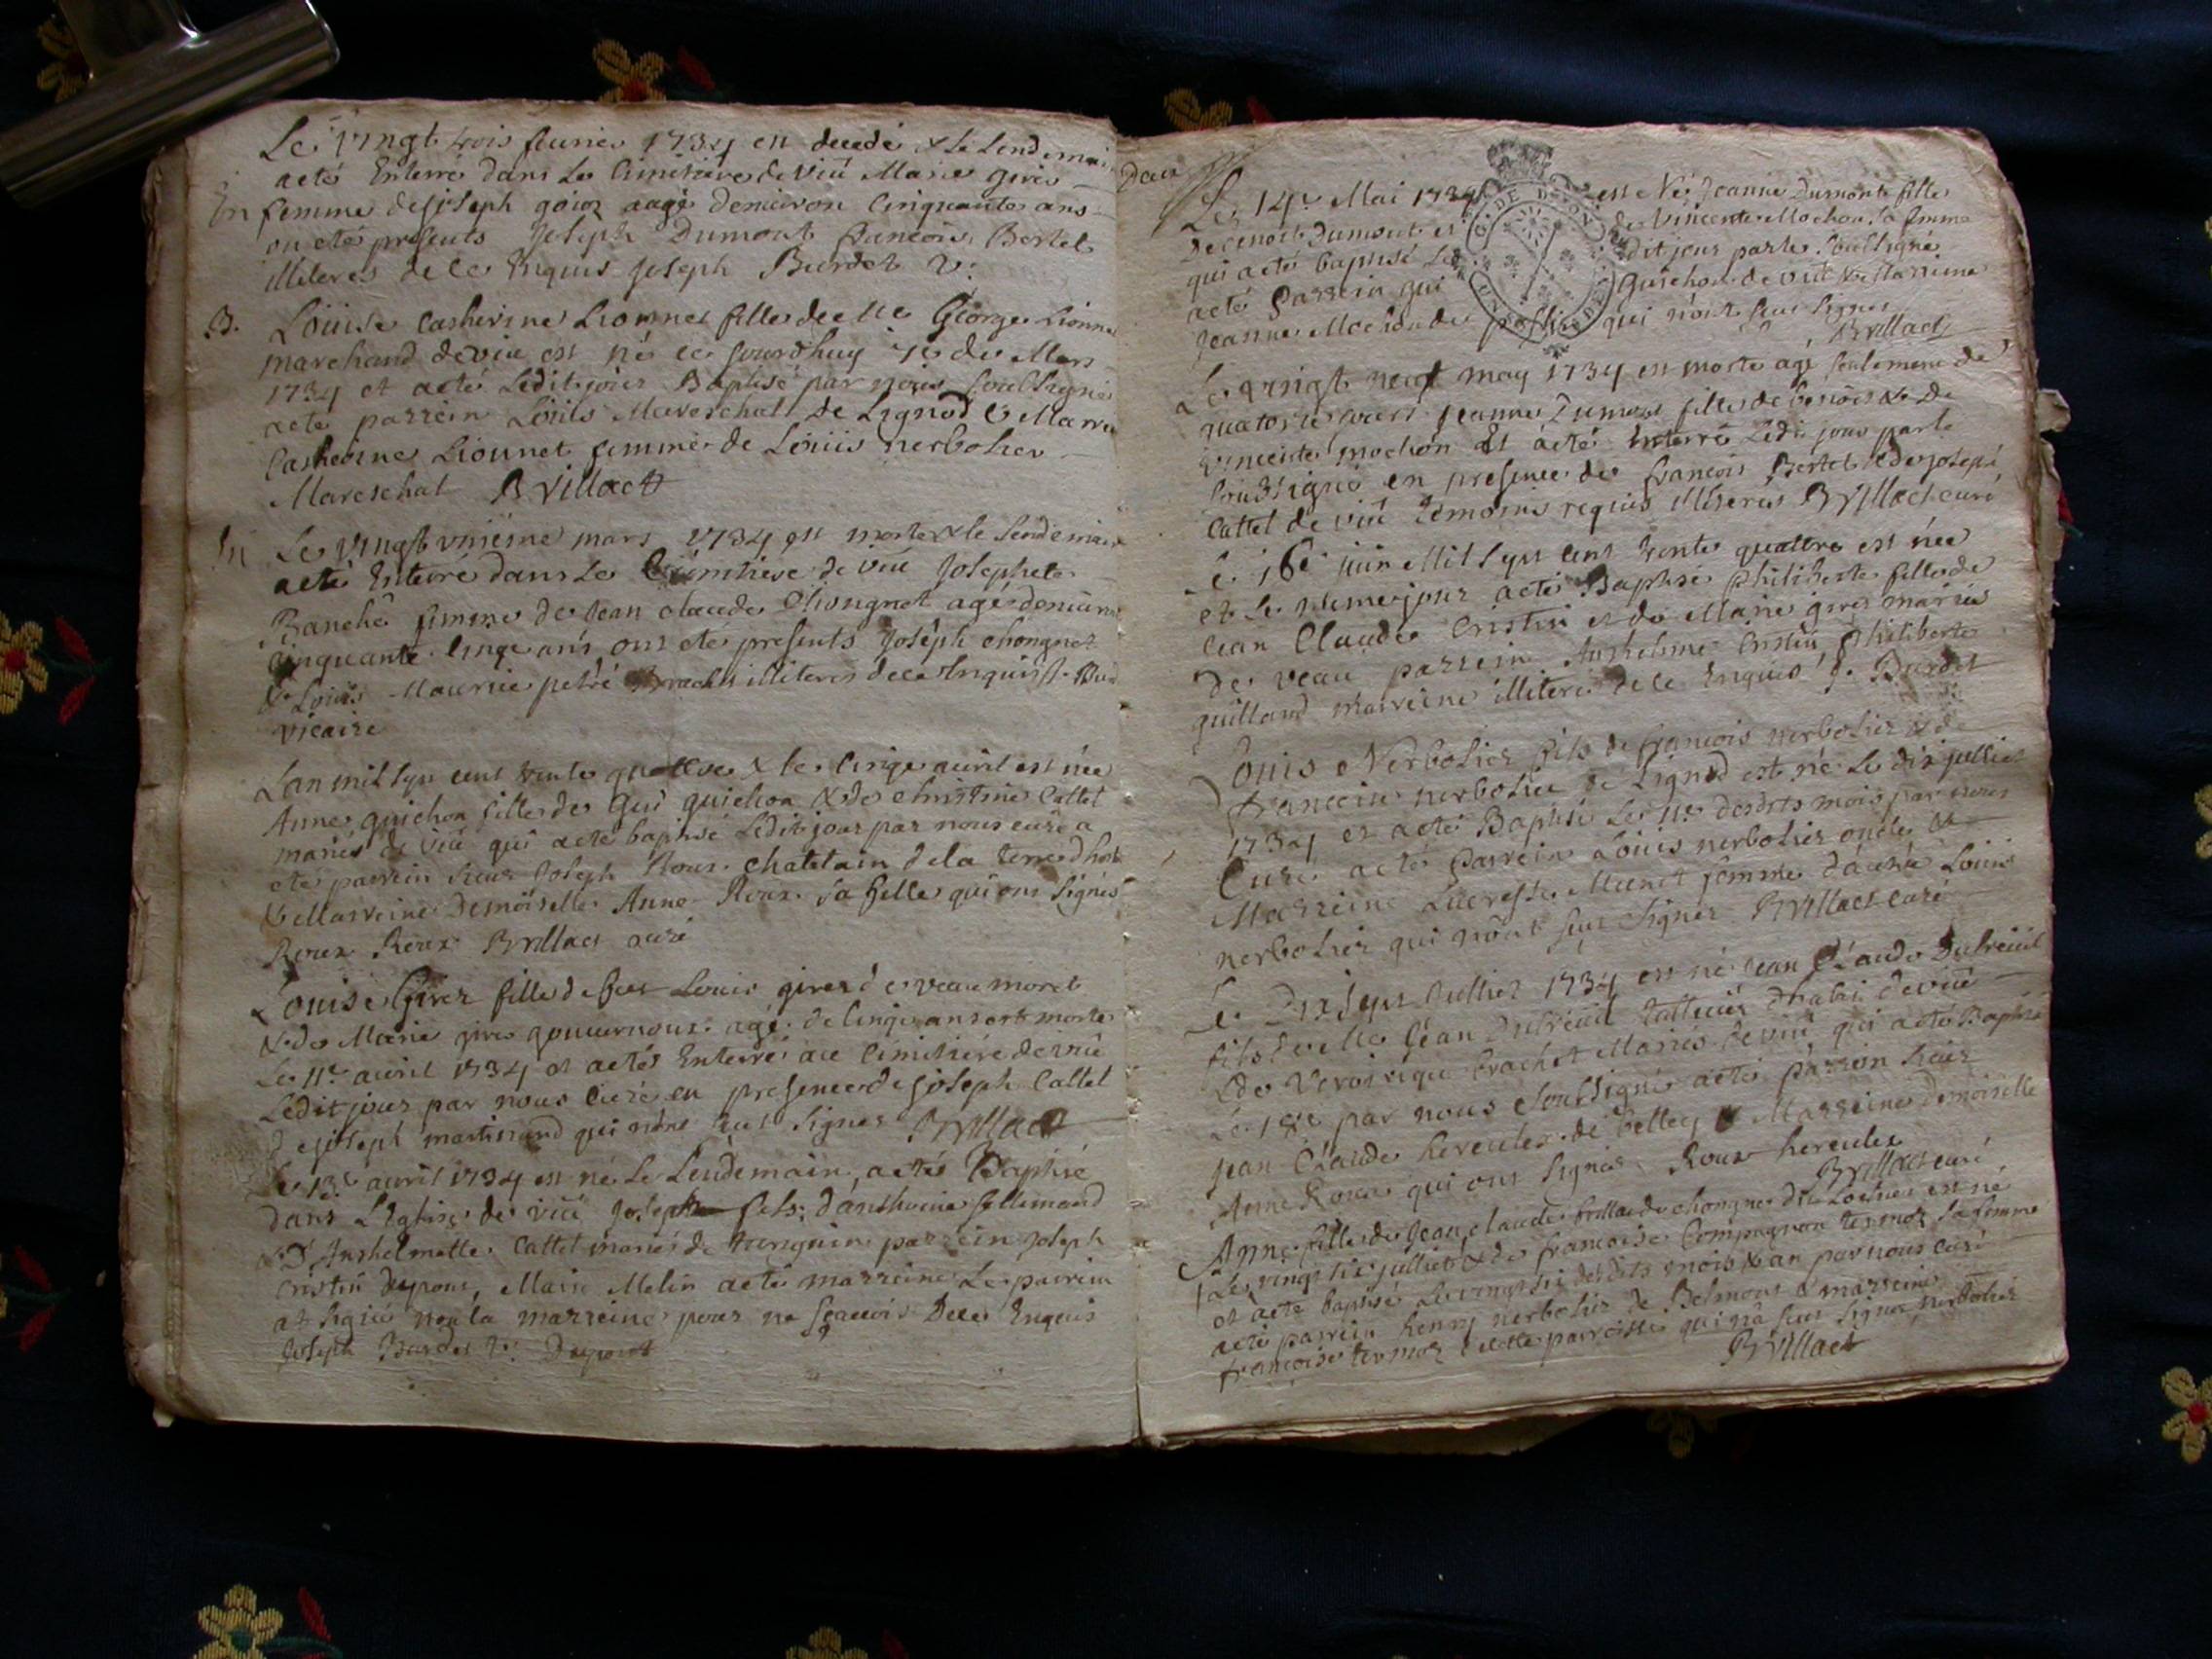 Le vingt trois feurier 1734 est decedé & Le Lendemain
acté Enterré dans Le Cimitiere de viû Marie girer
En femme de joseph goioz aagé denuiron Cinquante ans
on eté presents Joseph Dumont francois Bertet
illiteres de ce Enquis Joseph Burdet V:
B. Loüise Catherine Lionnet fille de Me George Lionnet
marchand de viû est né ce jourdhuy de Mars
1734 et acté Ledit jour Baptisé par nous soubsigné
acté parrein Loüis Mareschal de Lignod & Marrei
Catherine Lionnet femme de Loüis nerbolier
Mareschal Brillact
En Le vingt unieme mars 1734 est morte & le Lendemain
acté Enterré dans Le Cimitiere de viû Josephete
Banché femme de Jean claude Chongnet agé denuiron
Cinquante cinqe ans ont eté presents Joseph chongnet
& Loüis Maurice petré illiteres de ce Enquis J. Bur
vicaire
Lan mil sept cent trente quattre & le cinqe auril est née
Anne guichon fille de Gui guichon & de christine Cattet
mariés de viû qui acté baptisé Ledit jour par nous curé a
eté parrein sieur Joseph Roux chatelain de la terre dhost
& Marreine Demoiselle Anne Roux sa fille qui ont signés
Roux Roux Brillact curé
Louise Girer fille de feu Louis girer de veau moret
& de Marie girer gouuernoux agé de cinq ans est morte
Le 11e auril 1734 et acté Enterré au Cimitiére de viû
Ledit jour par nous Curé en presence de joseph Cattet
& de joseph martinand qui nont seut signer Brillact
Le 13e auril 1734 est né Le Lendemain, acté Baptisé
dans L'Eglise de viû Joseph fils danthoine sellemand
& D'Anthelmette Cattet mariés de parrein Joseph
Cristin dupont, Marie Melin acté marreine Le parrein
at signé non la marreine pour ne sçauoir Dece Enquis
Joseph Burdet V: Dupont
Le 14e Mai 1734 est Née Jeanne Dumont fille
de benoit Dumont et de Vincente Mochon sa femme
qui acté baptisé Le dit jour par le soubsigné
acté Parrein gui Guichon de viû & Marreine
Jeanne Mochon de qui nont seus signer
Brillact
Le vingt neuf may 1734 est morte agé seulement de
quatorze jours Jeanne Dumont fille de benoit & De
vincente mochon et acté Enterré Ledi jour par le
soubsigné en presence de francois Bertet & de joseph
Cattet de viû temoins requis illiterés Brillact curé
Le 16e juin Mil sept cent trente quattre est née
et le meme jour acté Baptisé philiberte fille de
Jean Claude Cristin et de Marie girer mariés
de veau parrein Anthelme Cristin, philiberte
guilland marreine illiteré de ce Enquis J. Burdet
Louis Nerbolier fils de francois nerbolier & de
francoise nerbolier de Lignod est né Le dix julliet
1734 et acté Baptisé Le 11e desdits mois par nous
Curé acté Parrein Loüis nerbolier oncle &
Marreine Lucresse Munet femme dautre Loüis
nerbolier qui nont seus signer Brillact curé
Le Dixsept Julliet 1734 est né Jean Claude Dubreüil
fils de Me Jean Dubreüil tallieur dhabis de viû
& de Veronique brachet Mariés de viû qui acté Baptisé
Le 18e par nous soubsigné acté Parrein sieur
Jean Claude hercules de belley & Marreine Demoiselle
Anne Roux qui ont signés Roux hercules
Brillact curé
Anne fille de Jean claude chongnet dit Lochet est né
Le vingt six julliet & de francoise Compagnon termoz sa femme
et acté baptisé Le vingt six desdits mois & an par nous curé
acté parrein henry nerbolier de Belmont & marreine
francoise termoz de cette parroisse qui na seus signer nerbolier
Brillact